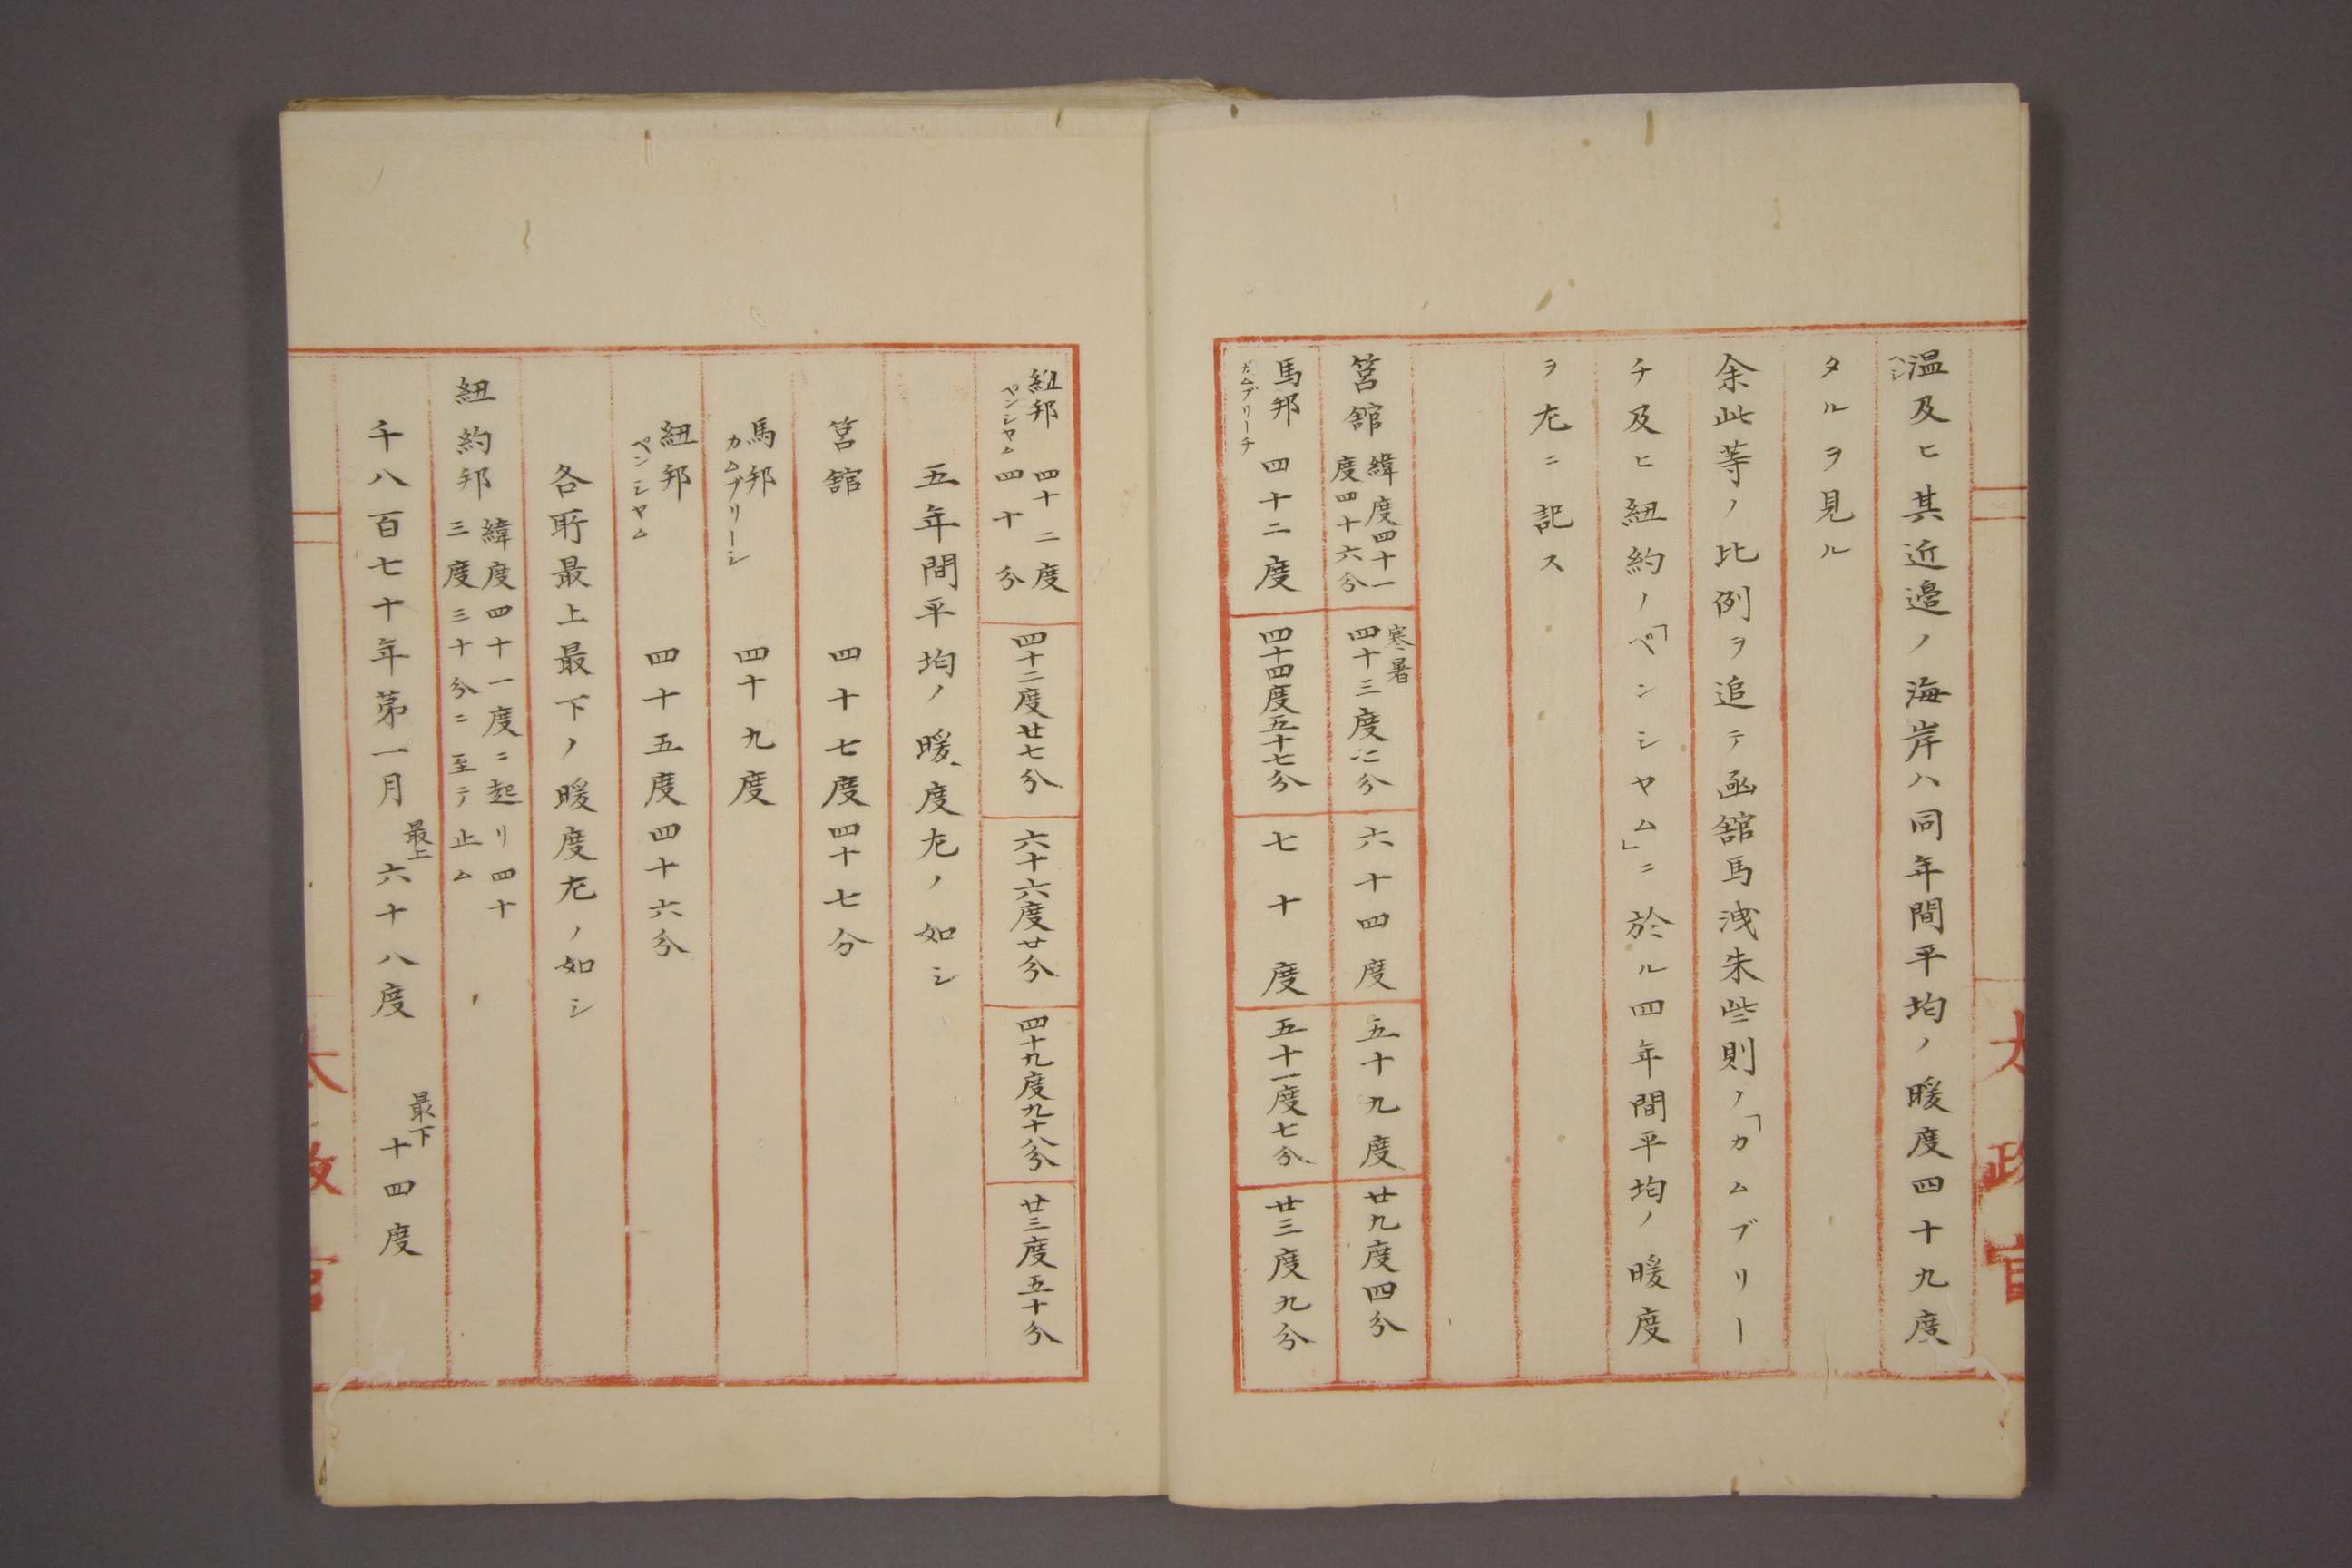 温及ヒ其近邉ノ海岸ハ同年間平均ノ暖度四十九度
ヘシ
タルヲ見ル
余此等ノ比例ヲ追テ函舘馬洩朱些則ノ「カムブリー
チ及ヒ紐約ノ「ペンシヤム」ニ於ル四年間平均ノ暖度
ヲ左ニ記ス
筥舘 緯度四十一度四十六分 寒暑 四十三度 分 六十四度 五十九度 廿九度四分
馬邦 カムブリーチ 四十二度 四十四度五十七分 七十度 五十一度七分 廿三度九分
太政官
紐邦 ペンシヤム 四十二度四十分 四十二度廿七分 六十六度廿分 四十九度九十八分 廿三度五十分
五年間平均ノ暖度左ノ如シ
筥舘 四十七度四十七分
馬邦 カムブリーシ 四十九度
紐邦 ペンシヤム 四十五度四十六分
各所最上最下ノ暖度左ノ如シ
紐約邦 緯度四十一度ニ起リ四十三度三十分ニ至テ止ム
千八百七十年第一月 最上 六十八度 最下 十四度
太政官